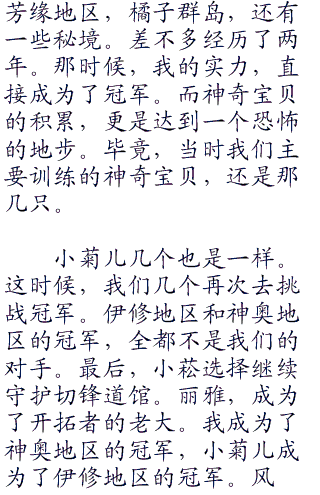 芳缘地区，橘子群岛，还有
一些秘境。差不多经历了两
年。那时候，我的实力，直
接成为了冠军。而神奇宝贝
的积累，更是达到一个恐怖
的地步。毕竟，当时我们主
要训练的神奇宝贝，还是那
几只。
小菊儿几个也是一样。
这时候，我们几个再次去挑
战冠军。伊修地区和神奥地
区的冠军，全都不是我们的
对手。最后，小菘选择继续
守护切锋道馆。丽雅，成为
了开拓者的老大。我成为了
神奥地区的冠军，小菊儿成
为了伊修地区的冠军。风